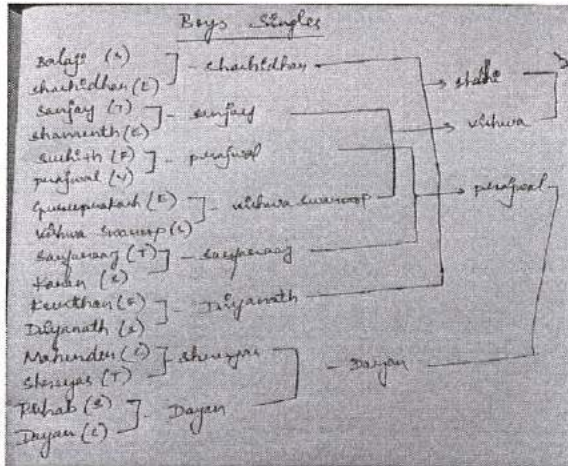 Boys Singles
Balaji (S)
Shashidhar (E) - Shashidhar
Sanjay (T)
Shamanth (E) - Sanjay
Suchith (F)
Prajwal - Prajwal
Guruprakash (E)
Vishwa Swaroop (S) - Vishwa Swaroop
(T)
Karan (S)
(F)
Divyanath (S) - Divyanath
Mahendra
Shreyas (T) - Shreyas
Rehab (S)
Dayan - Dayan
Shashi
Vishwa
Prajwal
Dayan